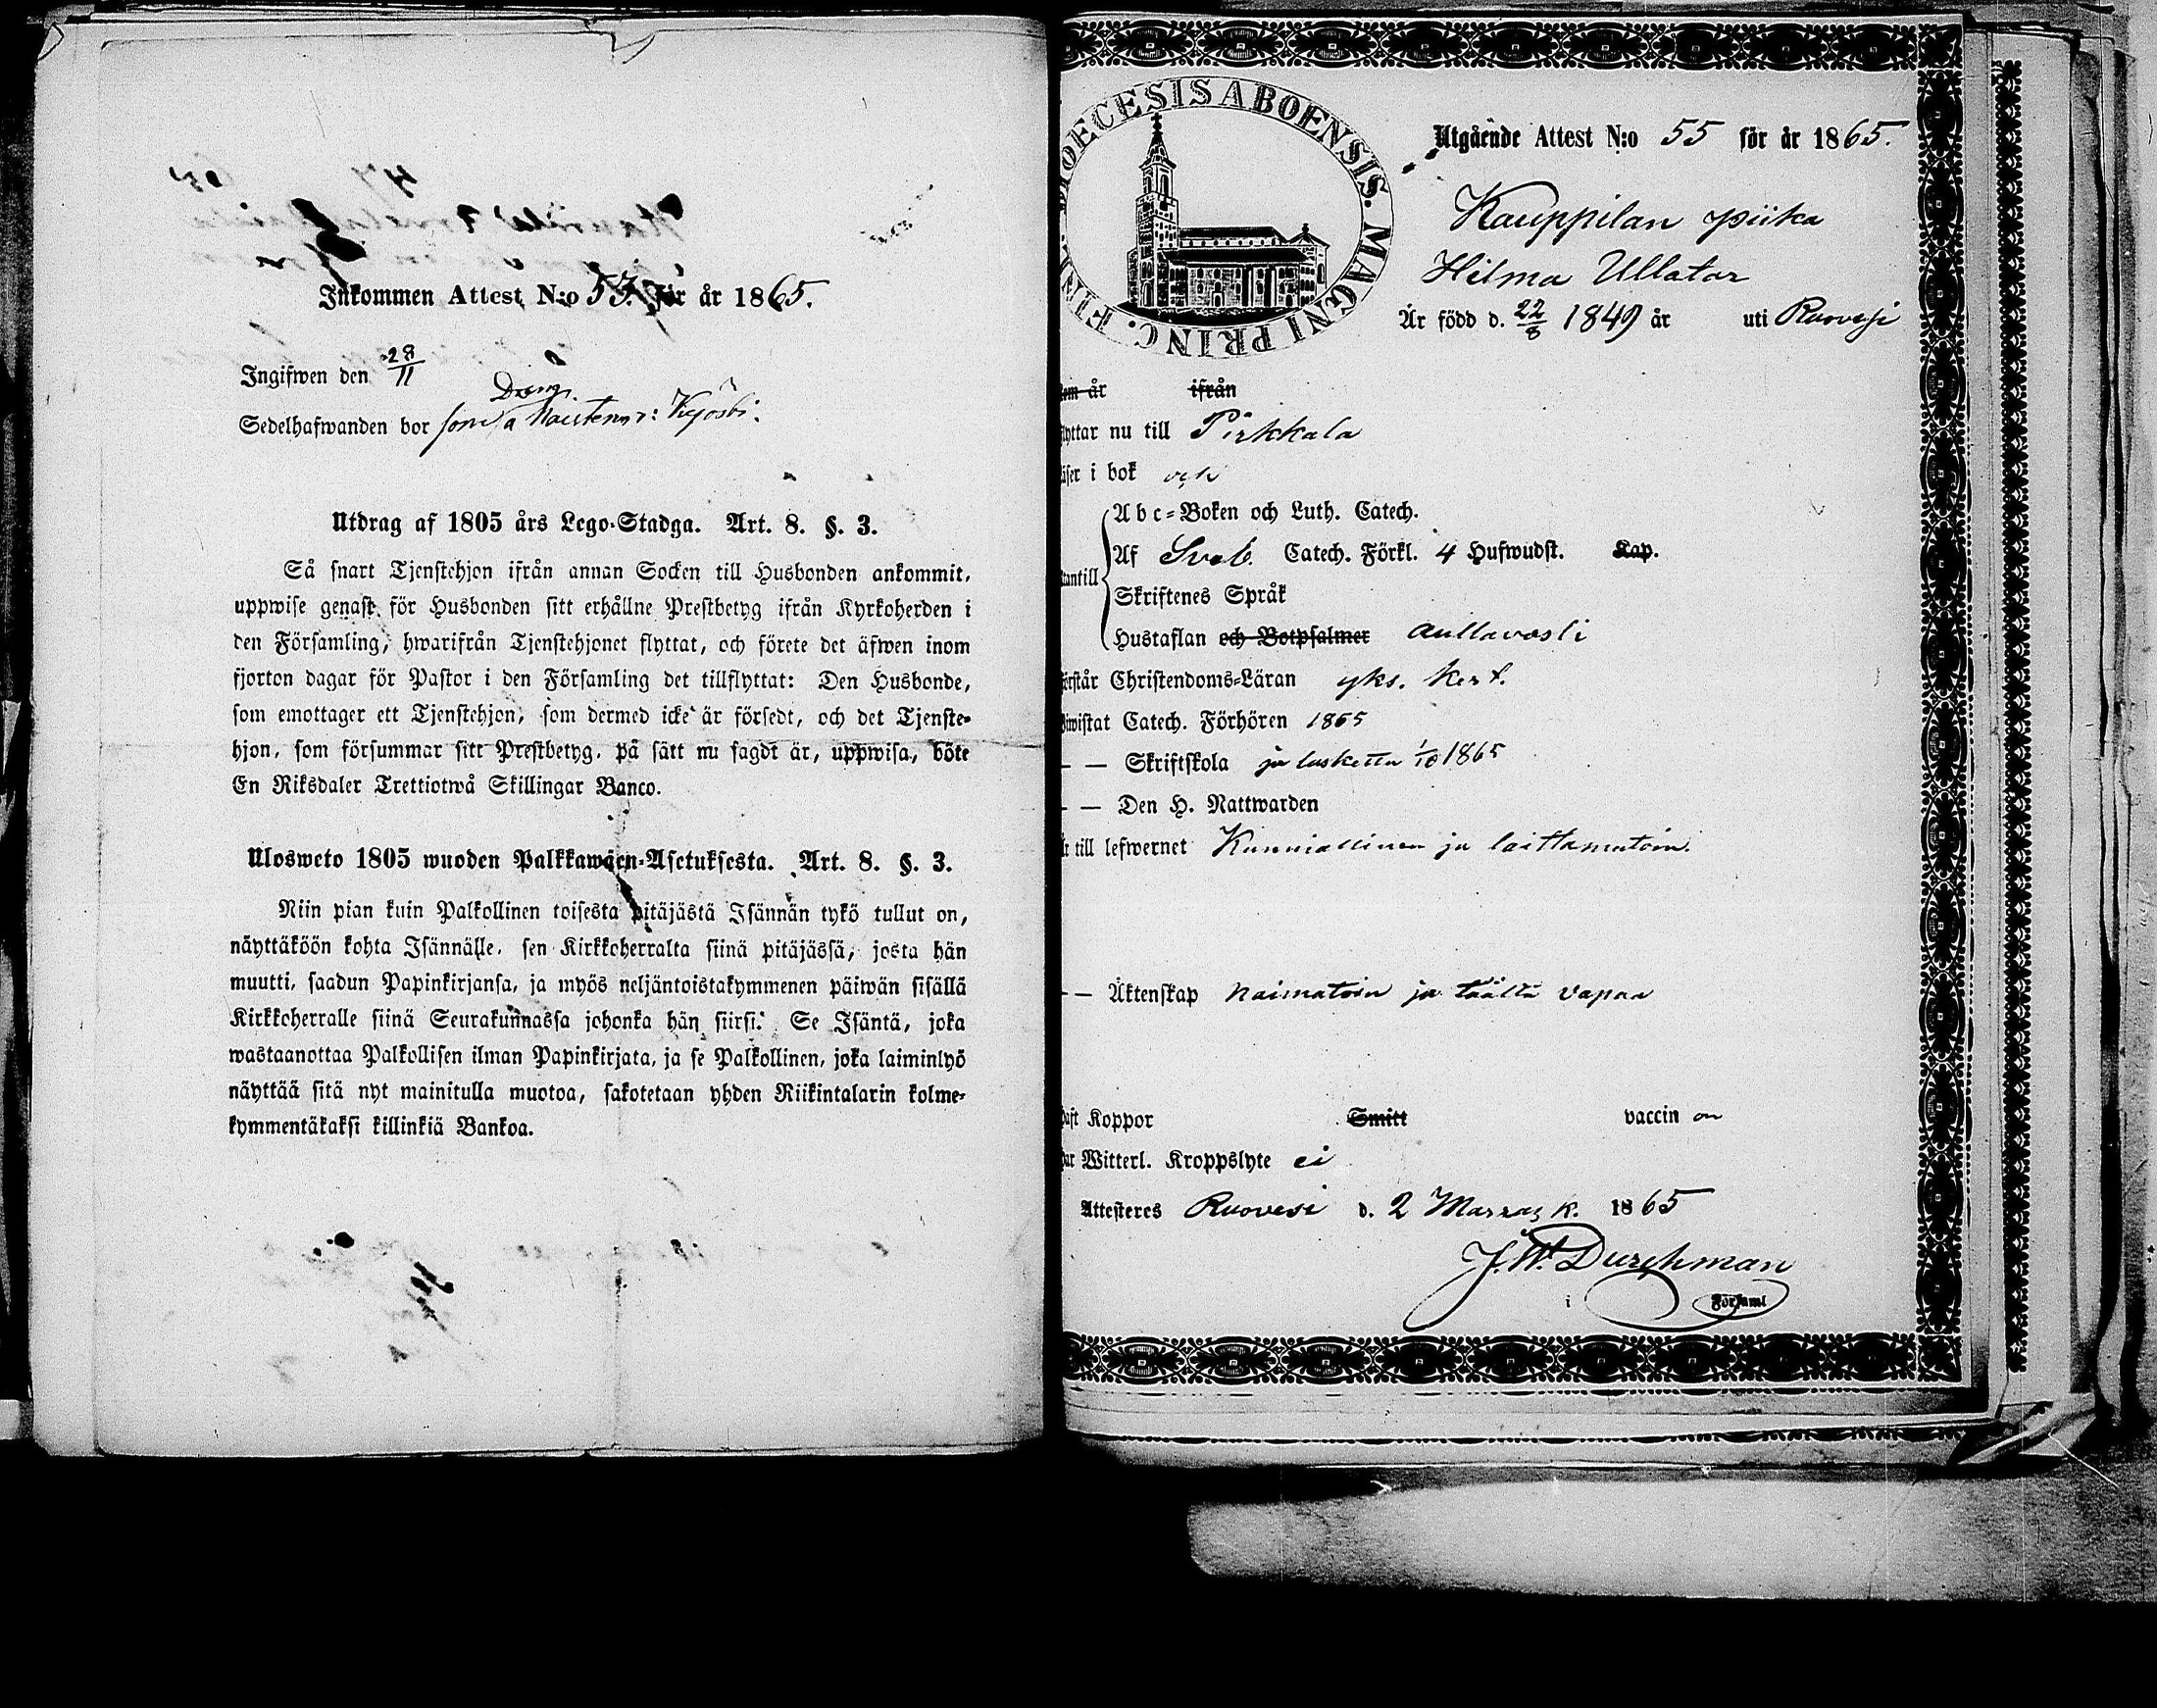 Inkommen Attest N:o 53. för år 1865.
Ingifwen den 28/11
Dräng
Sedelhafwanden bor som
Utdrag af 1805 års Lego-Stadga. Art. 8. §. 3.
Så snart Tjenstehjon ifrån annan Socken till Husbonden ankommit,
uppwise genast för Husbonden sitt erhållne Prestbetyg ifrån Kyrkoherden i
den Församling, hwarifrån Tjenstehjonet flyttat, och förete det äfwen inom
fjorton dagar för Pastor i den Församling det tillflyttat: Den Husbonde,
som emottager ett Tjenstehjon, som dermed icke är försedt, och det Tjenste-
hjon, som försummar sitt Prestbetyg, på sätt nu sagdt är, uppwisa, böte
En Riksdaler Trettiotwå Skillingar Banco.
Ulosweto 1805 wuoden Palkkawäen-Asetuksesta. Art. 8. §. 3.
Niin pian kuin Palkollinen toisesta pitäjästä Isännän tykö tullut on,
näyttäköön kohta Isännälle, sen Kirkkoherralta siinä pitäjässä, josta hän
muutti, saadun Papinkirjansa, ja myös neljäntoistakymmenen päiwän sisällä
Kirkkoherralle siinä Seurakunnassa johonka hän siirsi. Se Isäntä, joka
wastaanottaa Palkollisen ilman Papinkirjata, ja se Palkollinen, joka laiminlyö
näyttää sitä nyt mainitulla muotoa, sakotetaan yhden Riikintalarin kolme-
kymmentäkaksi killinkiä Bankoa.
DIOECESIS ABOENSIS. MAGNI PRINC. FIN
Utgående Attest N:o 55 för år 1865.
Kauppilan piika
Hilma Ullatar
Är född d. 22/8 1849 år uti Ruovesi
kom år ifrån
flyttar nu till Pirkkala
läser i bok och
Abc-Boken och Luth. Catech.
Af Sveb. Catech. Förkl. 4 Hufwudst. Kap.
utantill
Skriftenes Språk
Hustaflan och Botpsalmer auttavasti
förstår Christendoms-Läran yks. kert.
biwistat Catech. Förhören 1865
— — Skriftskola ja laskettu 1/10 1865
— — Den H. Nattwarden
är till lefwernet Kunniallinen ja laittamatoin.
— — Äktenskap naimatoin ja täältä vapaa
haft Koppor Smitt vaccin on
har Witterl. Kroppslyte ei
Attesteres Ruovesi d. 2 Marrask. 1865
J. W. Durchman
i Församl